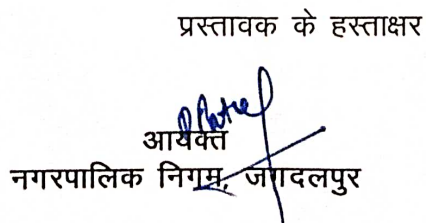 प्रस्तावक के हस्ताक्षर
आयुक्त
नगरपालिक निगम, जगदलपुर